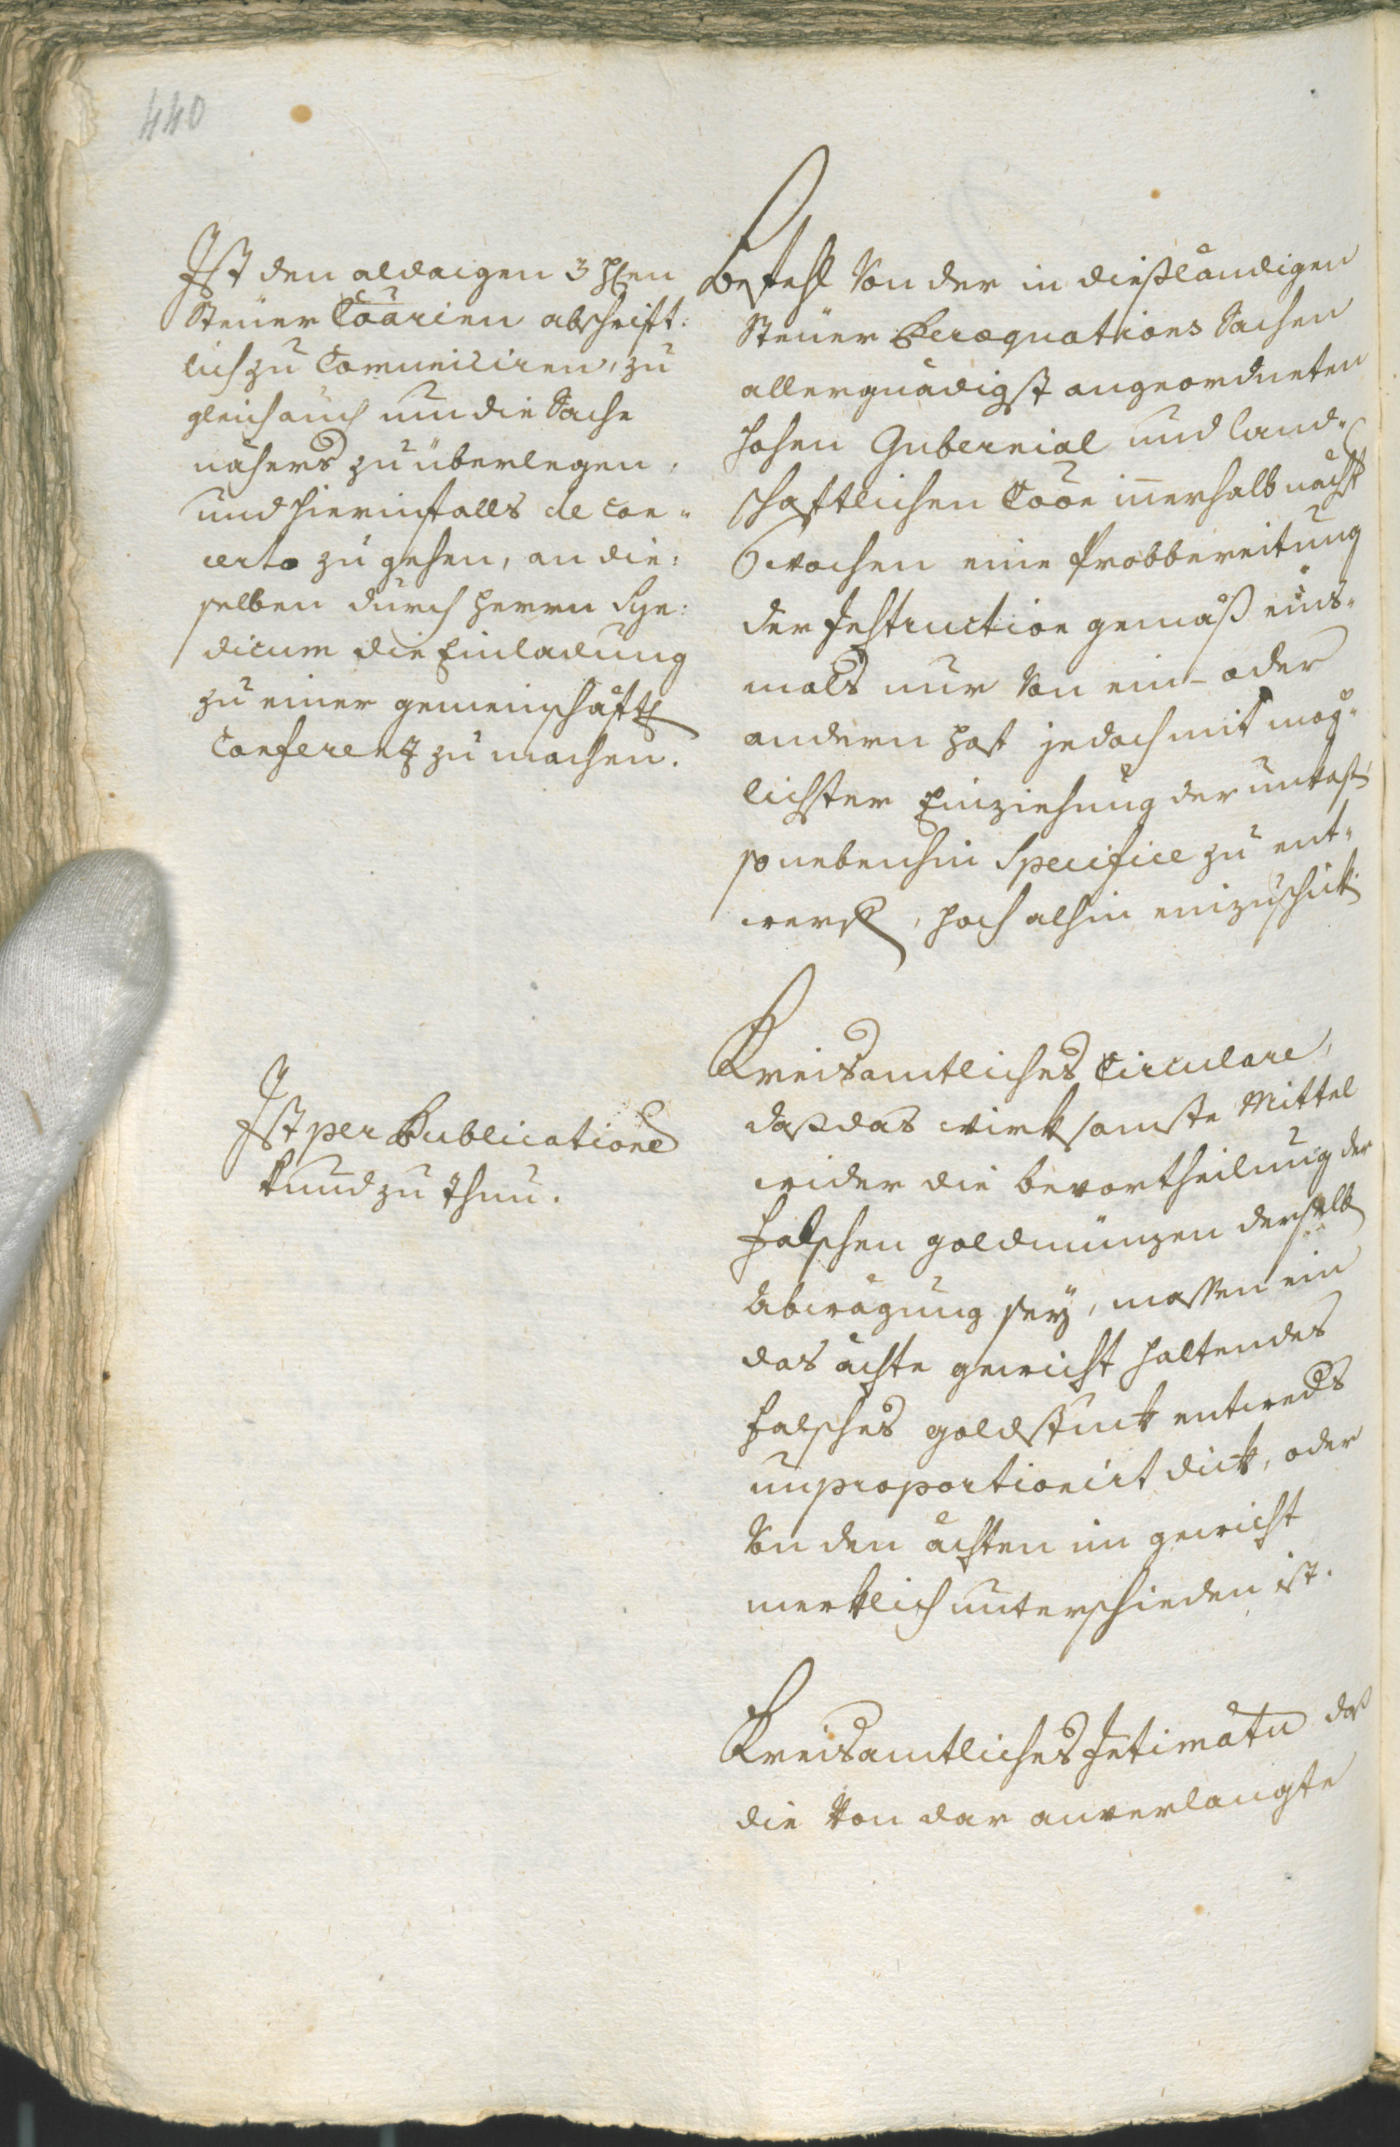 440
Ist den aldaigen 3 H̃en
Steuer Cõarien abschrift:
lich zu Comuniciren, zu
gleich auch um die Sache
nähers zu überlegen,
und hierinfalls de con-
certo zu gehen, an die:
selben durch Herrn Syn:
dicum die Einladung
zu einer gemeinschäftl
Conferenz zu machen.
Befehl von der in diesländigen
Steuer Peræquations Sachen
allergnädigst angeordneten
hohen Gubernial und Land-
schaftlichen Cõon innerhalb nächst
6 Wochen eine Probbereitung
der Instruction gemäß eins-
mals nur von ein- oder
andern Hof jedoch mit mög-
lichster Einziehung der
so nebenhin Specifice zu ent-
werfen, hoch alhin einzuschick
Kreisamtliches Circulare,
daß das wirksamste Mittel
wider die bevortheilung der
falschen goldmünzen derselb
Abwägung sey, massen ein
das ächte gewicht haltendes
falsches goldstuck entweders
unproportionirt dick, oder
von den ächten im gewicht
merklich unterschieden ist.
Ist per Publicatione
kund zu thun.
Kreisamtliches Intimatu daß
die von dar anverlangte